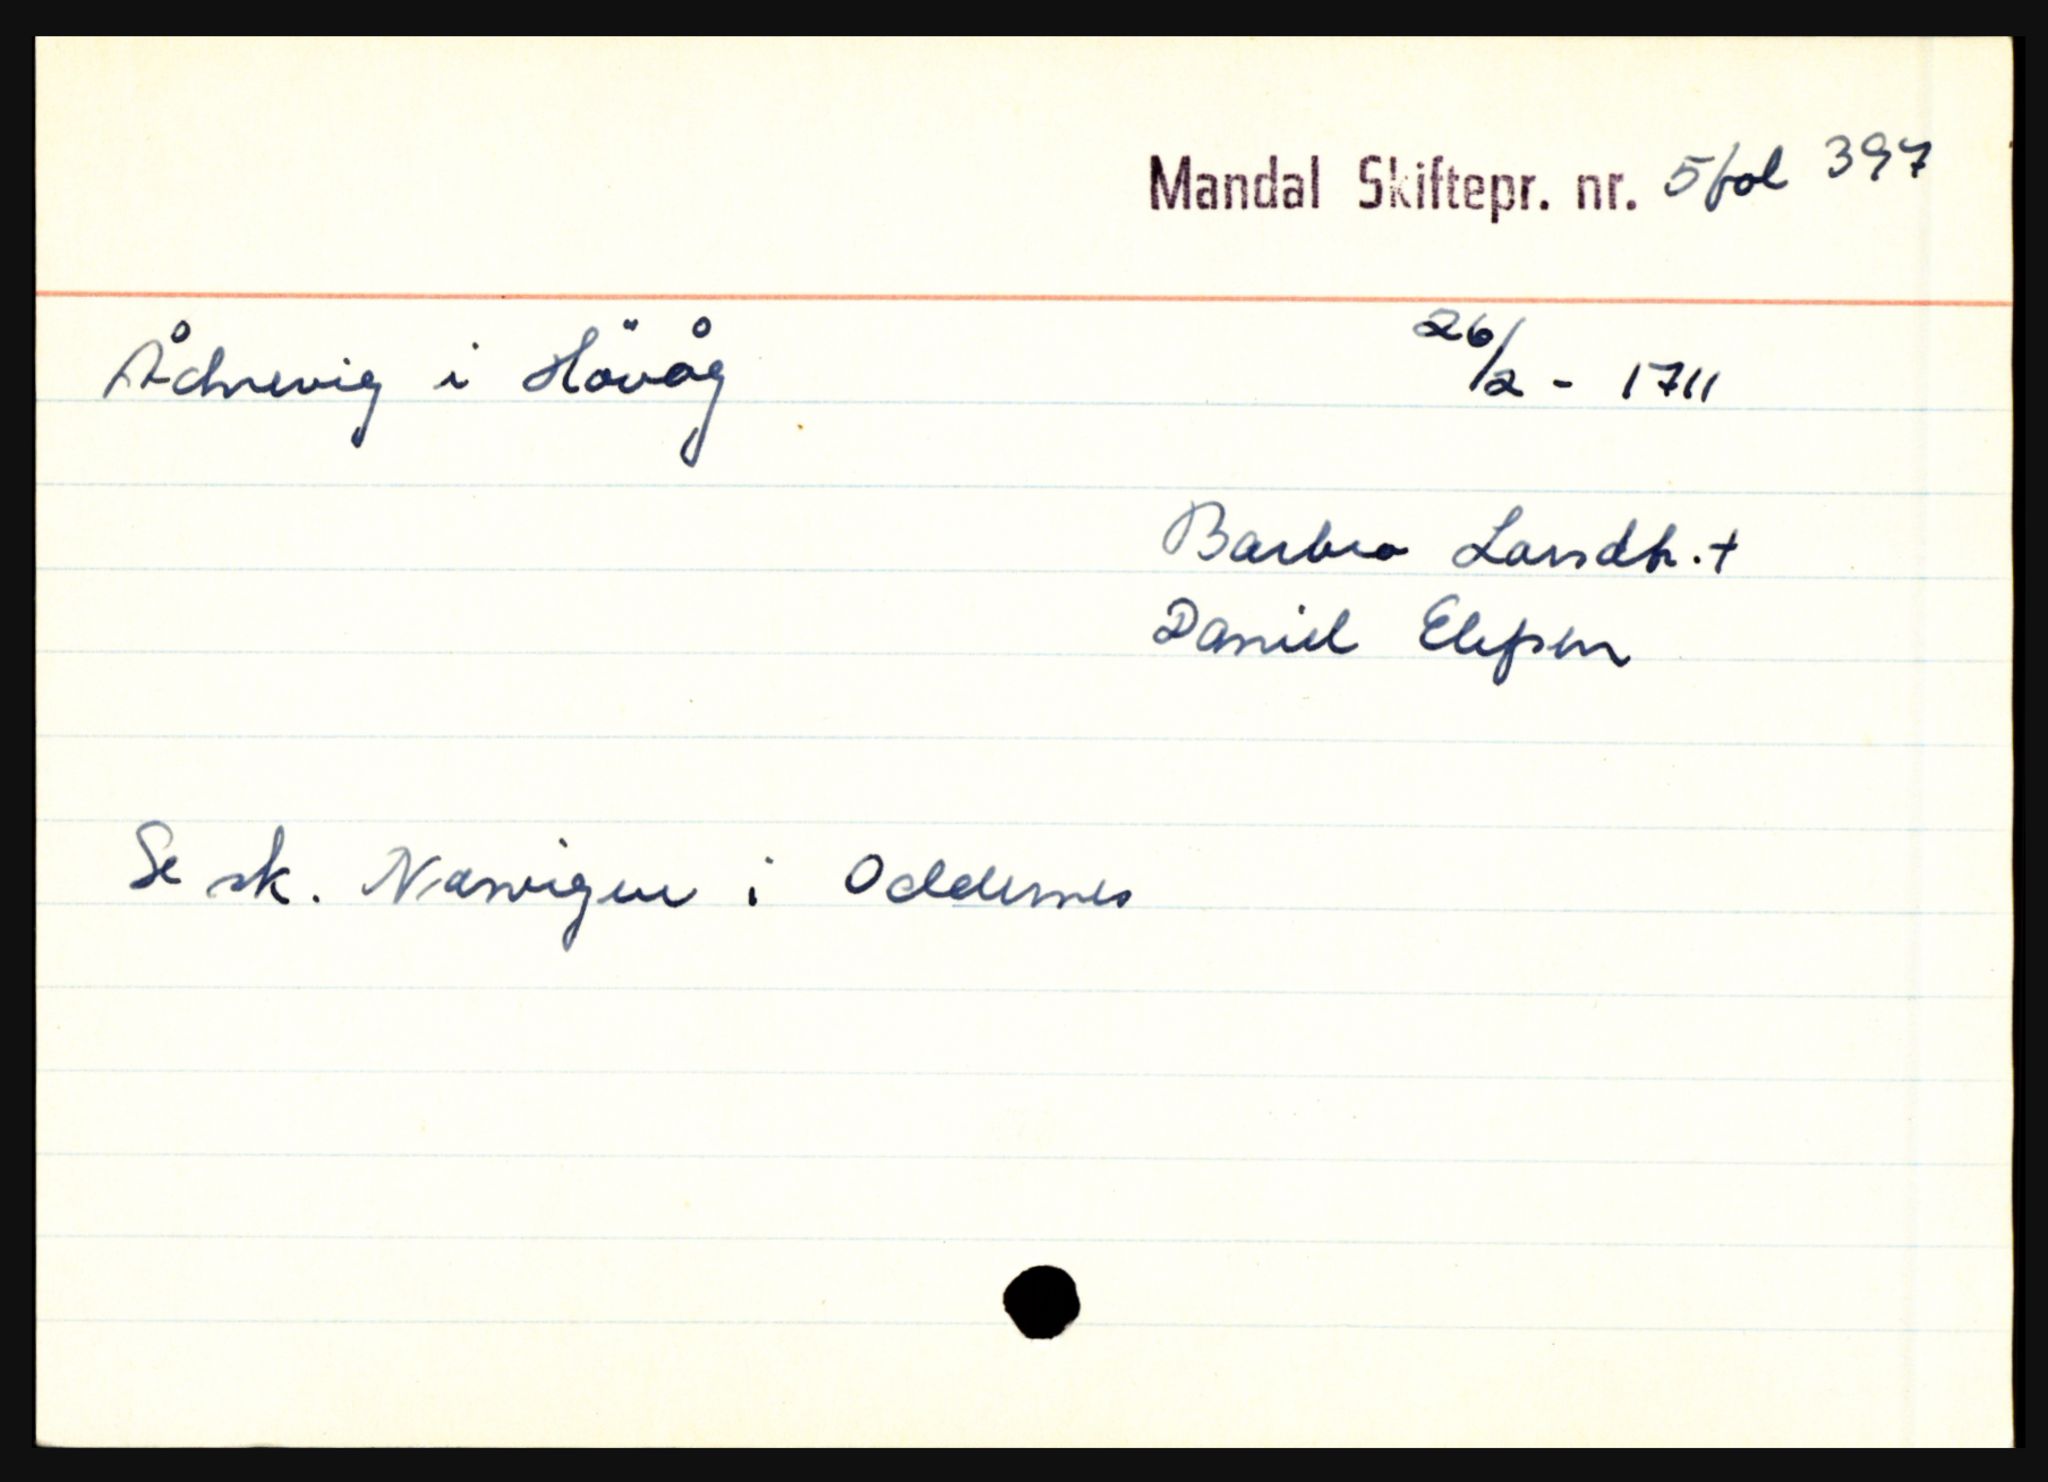 Mandal Skiftepr. nr. 5 fol 397
Ådnevig i Hövåg 26/2 - 1711
Barbro Larsdtr. +
Daniel Elefsen
Se sk. Narvigen i Oddernes